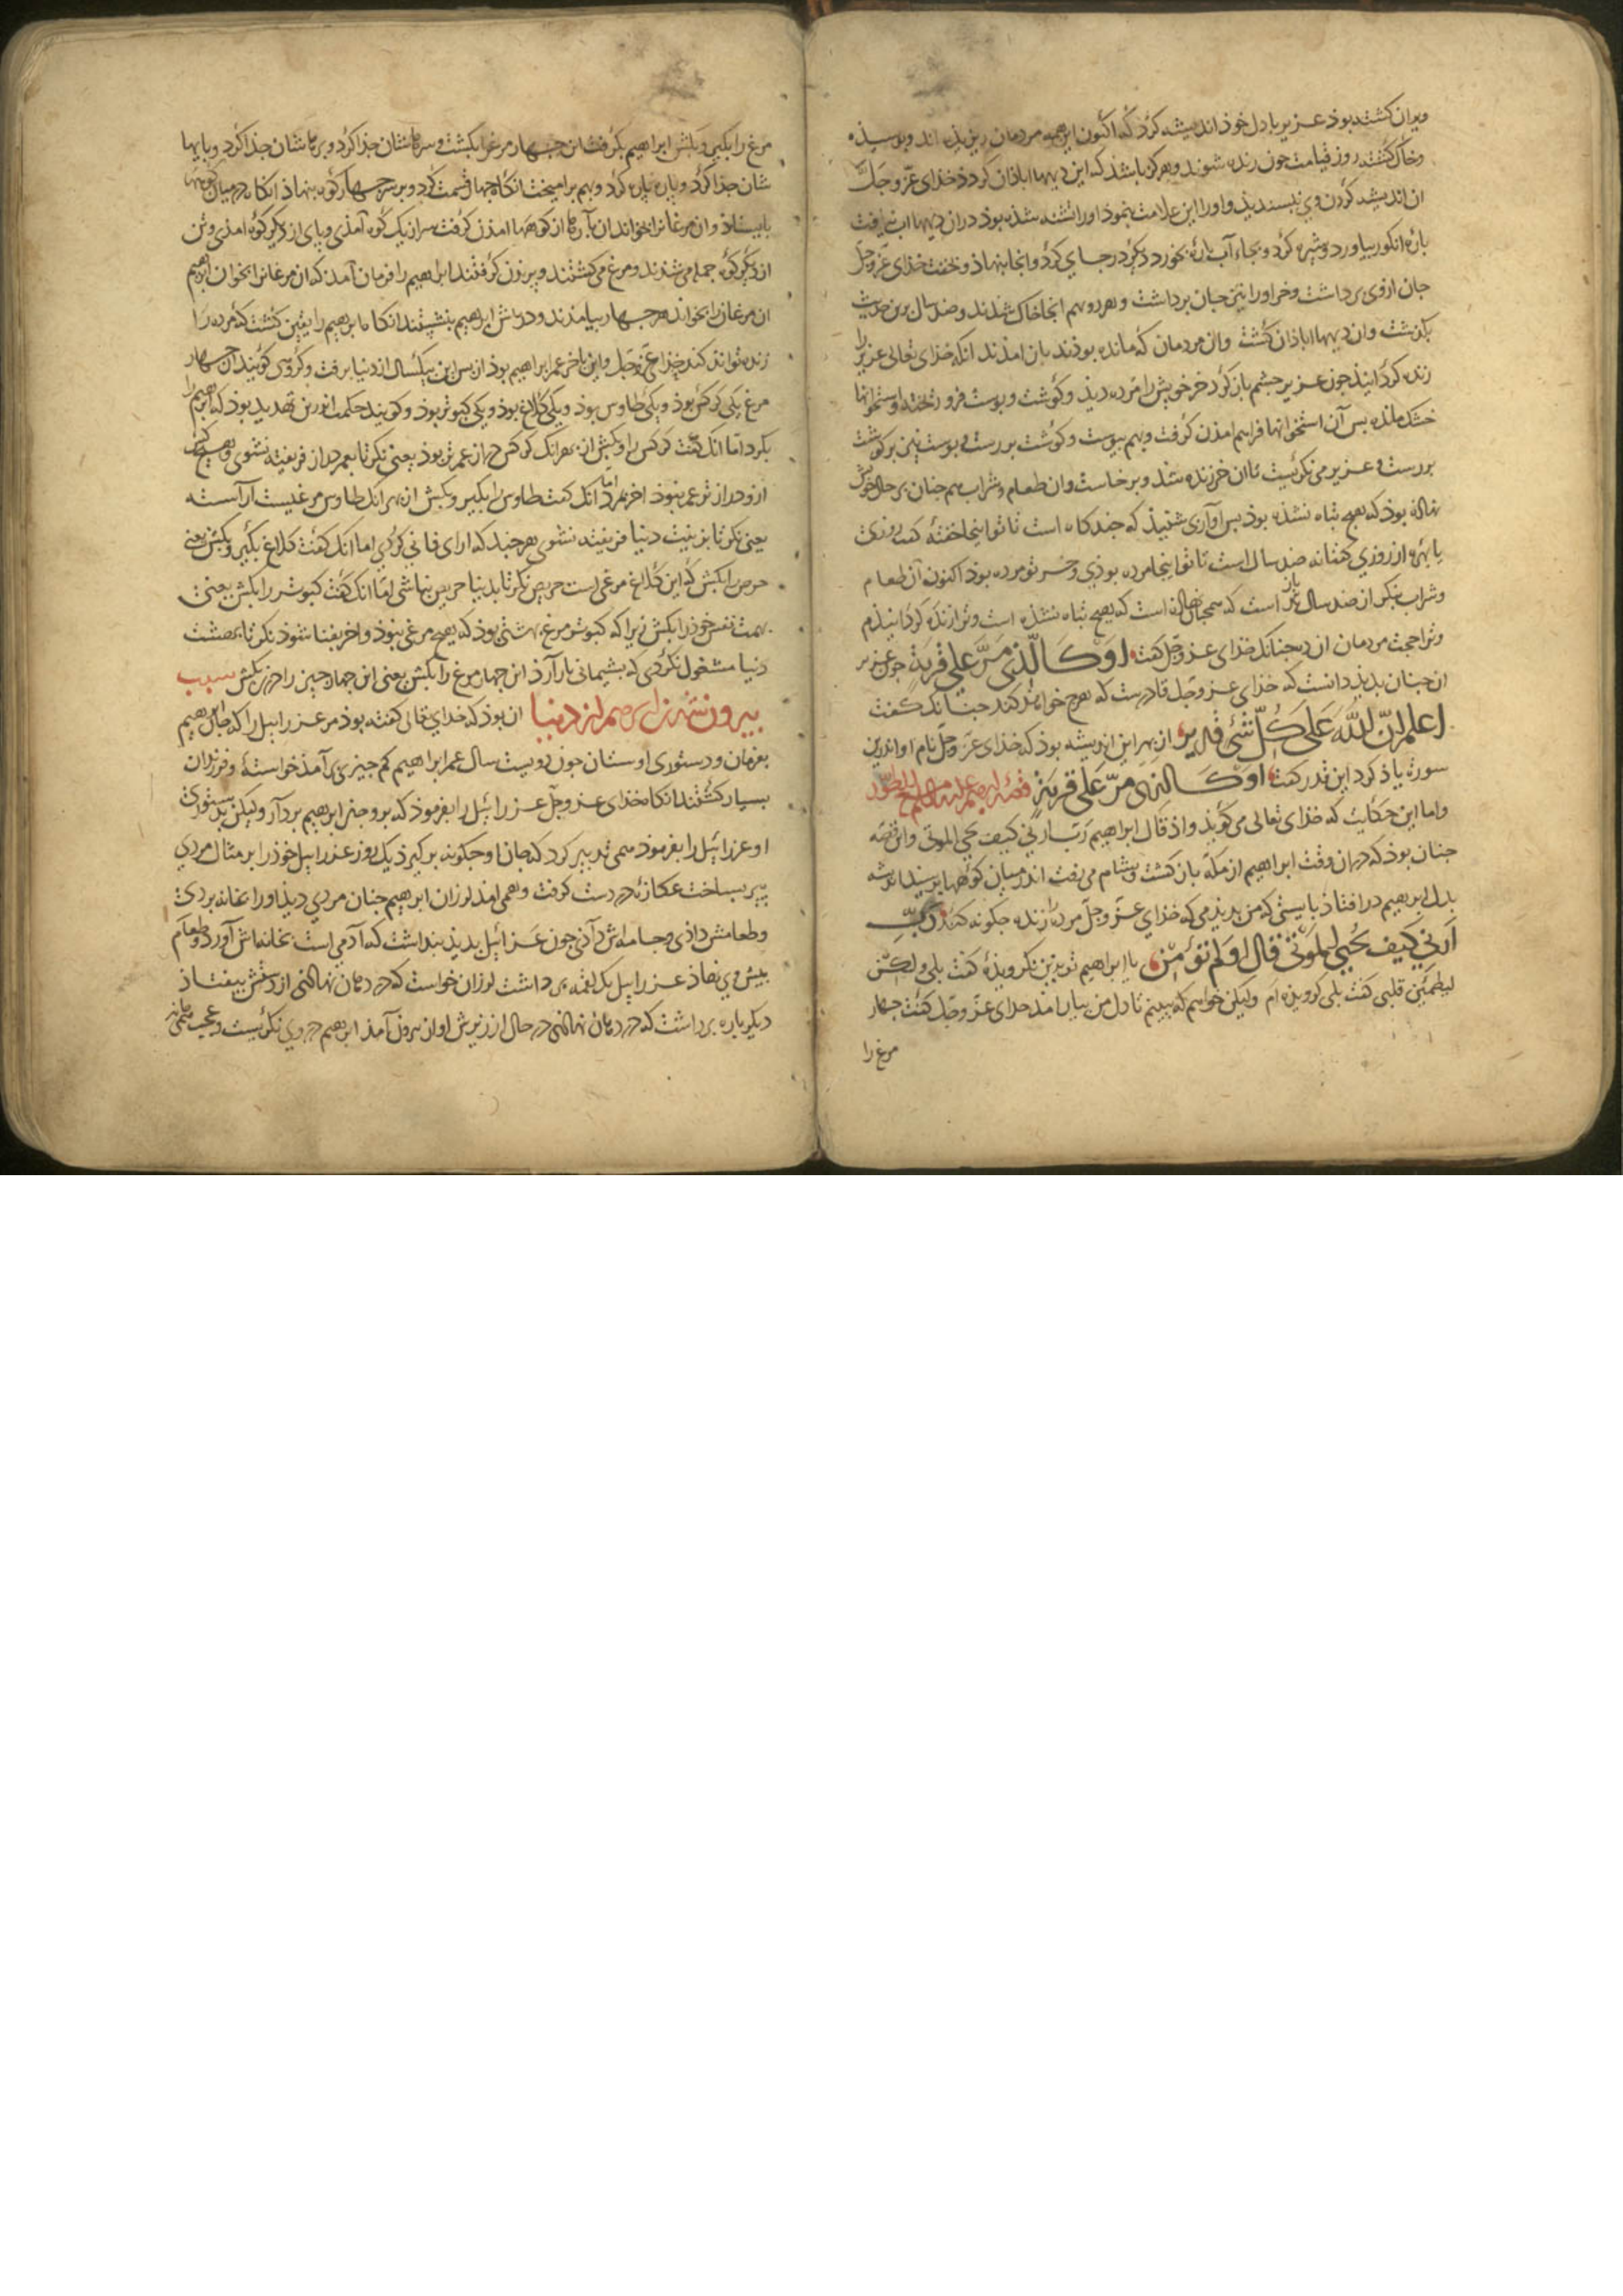 ویران کشته بوذ عزیر با دل خوذ اندیشه کرد که اکنون این همه مردمان ریزیذه اند و بوسیذه
و خاک کشته روز قیامت جون زنده شوند و هرکز باشذ که این دیهها اباذان کردذ خذای عزّ و جلّ
ان اندیشه کردن وی نبسندیذ و او را این علامت بنموذ او را تشنه شذه بوذ دران دیهها اب نیافت
باره انکور بیاورد و شیره کرد و بجاء آب باره بخورد دیکر در جای کرد و انجا بنهاذ و خفت خذای عزّ و جلّ
جان ازوی برداشت و خر او را نیز جان برداشت و هر دو بهم انجا خاک شذند و صذ سال برین حدیث
بکذشت و ان دیهها اباذان کشت و ان مردمان که مانده بوذند بان امذند انکه خذای تعالی عزیر را
زنده کردانیذ جون عزیر جشم باز کرد خر خویش را مرده دیذ و کوشت و بوست فرو ریخته و استخوانها
خشک مانده بس آن استخوانها فراهم امذن کرفت و بهم بیوست و کوشت بررست و بوست نیز بر کوشت
بررست و عزیر می نکریست تا ان خر زنده شذ و برخاست و ان طعام و شراب هم جنان بر حال خویش
نهاذه بوذ که هیج تباه نشذه بوذ بس آوازی شنیذ که جند کاه است تا تو اینجا خفتهٔ کفت روزی
یا بهرهٔ از روزی کفتا نه صذ سال است تا تو اینجا مرده بوذی و خر تو مرده بوذ اکنون آن طعام
و شراب بنکر از صذ سال باز است که همجنان نهاذه است که هیج تباه نشذه است و ترا زنده کردانیذم
و ترا حجت مردمان جنانکه خذای عزّ و جلّ کفت اَوْ كَالَّذِي مَرَّ عَلَى قَرْيَةٍ جون عزیر
ان جنان بدیذ دانست که خذای عزّ و جلّ قادرست که هرج خواهذ کند جنانک کفت
اعلم انّ اللّٰه عَلَى كُلِّ شَيْءٍ قدير از بهر این اندیشه بوذ که خذای عزّ و جلّ نام او اندرین
سورة یاذ کرد این قدر کفت اَوْ كَالذي مَرّ عَلَى قريَةٍ قصّه ابرهیم علیه السلم مع الطیور
و اما این حکایت که خذای تعالی می کویذ و اذ قال ابراهیم رَبّ ارني کیف تحي الموتی و این قصّه
جنان بوذ که دران وقت ابراهیم از مکّه باز کشت و بشام می رفت اندر میان کوهها برسیذ اندیشه
بدل ابرهیم در افتاذ بایستی که من بدیذمی که خذای عزّ و جلّ مرده را زنده جکونه کند رَبِّ
اَرني كَيفَ تُحيي الموتى قال اوَلم تؤمن یا ابراهیم تو بدین نکرویذهٔ کفت بلی ولكن
ليطمئن قلبي کفت بلی کرویذه ام ولیکن خواهم که ببینم تا دل من بیارامذ خذای عزّ و جلّ کفت جهار
مرغ را
مرغ را بکیر و بکش ابراهیم بکرفت ان جهار مرغ را بکشت و سرهاشان جذا کرد و برهاشان جذا کرد و بایها
شان جذا کرد و باره باره کرد و بهم برامیخت انکاه جهار قسمت کرد و بر سر جهار کوه بنهاذ انکاه در میان کوهها
بایستاذ و ان مرغانرا بخواند ان بارها از کوهها امذن کرفت سر از یک کوه آمذی و بای از دیکر کوه امذی و تن
از دیکر کوه جمله می شذند و مرغ می کشتند و بریذن کرفتند ابراهیم را فرمان آمذ که ان مرغانرا بخوان ابرهیم
ان مرغان را بخواند هر جهار بیامذند و در بیش ابراهیم بنشستند انکاه ابرهیم را یقین کشت که مرده را
زنده تواند کند خذا عزّ و جلّ و این باخر عمر ابراهیم بوذ از بس این بیکسال از دنیا برفت و کروهی کویند ان جهار
مرغ یکی کرکس بوذ و یکی طاوس بوذ و یکی کلاغ بوذ و یکی کبوتر بوذ و کویند حکمت اندرین تهدید بوذ که ابرهیم را
بکرد اما انک کفت کرکس را بکش از بهر انک کرکس دراز عمر تر بوذ یعنی نکر تا بعمر دراز فریفته نشوی و هیج کس
ازو دراز تر عمر نبوذ اخر بمرد اما انک کفت طاوس را بکیر و بکش از بهر انک طاوس مرغیست آراسته
یعنی نکر تا بزینت دنیا فریفته نشوی هر جند که ارای فانی کردی اما انک کفت کلاغ بکیر و بکش یعنی
حرص را بکش که این کلاغ مرغی است حریص نکر تا بدنیا حریص نباشی اما انک کفت کبوتر را بکش یعنی
همت نفس خوذ را بکش زیرا که کبوتر مرغ بهشتی بوذ که هیج مرغی نبوذ و اخر بفنا شوذ نکر تا
دنیا مشغول نکردی که بشیمانی بار آرذ این جهار مرغ را بکش یعنی این جهار جیز را در خوذ بکش سبب
بیرون شدن ابرهیم از دنیا ان بوذ که خدای تعالی کفته بوذ مر عزراییل را که جان ابرهیم
بفرمان و دستوری او ستان جون دویست سال عمر ابراهیم کم جیزی بر آمذ خواسته و فرزندان
بسیار کشتند انکاه خذای عزّ و جلّ عزراییل را بفرموذ که برو جان ابرهیم بردآر ولیکن بدستوری
او عزراییل را بفرموذ همی تدبیر کرد که جان او جکونه بر کیرذ یک روز عزراییل خوذ را بر مثال مردی
بیر بساخت عکازهٔ در دست کرفت و همی امذ لرزان ابرهیم جنان مردی دیذ او را بخانه بردی
و طعامش داذی و جامه اش دآذی جون عزراییل بدیذ بنداشت که آدمی است بخانه اش آورد و طعآم
بیش وی نهاذ عزراییل یک لقمه برداشت لرزان خواست که در دهان نهاذ از دستش بیفتاذ
دیکر باره برداشت که در دهان نهاذ در حال از زیرش اوان بیرون آمذ ابرهیم در وی نکریست و عجب